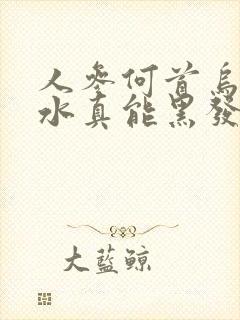 人參何首烏
水真能黑發
大藍鯨